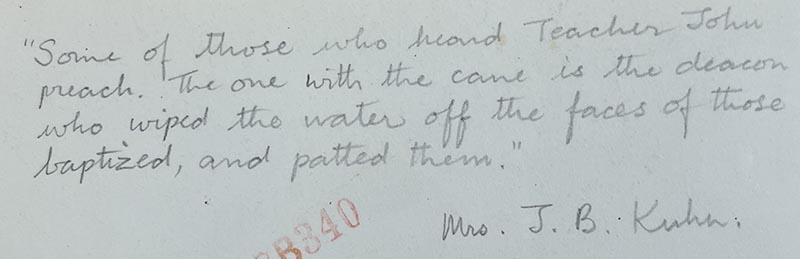 "Some of those who heard Teacher John
preach. The one with the cane is the deacon
who wiped the water off the faces of those
baptized, and patted them."
Mrs. J. B. Kuhn.
B340